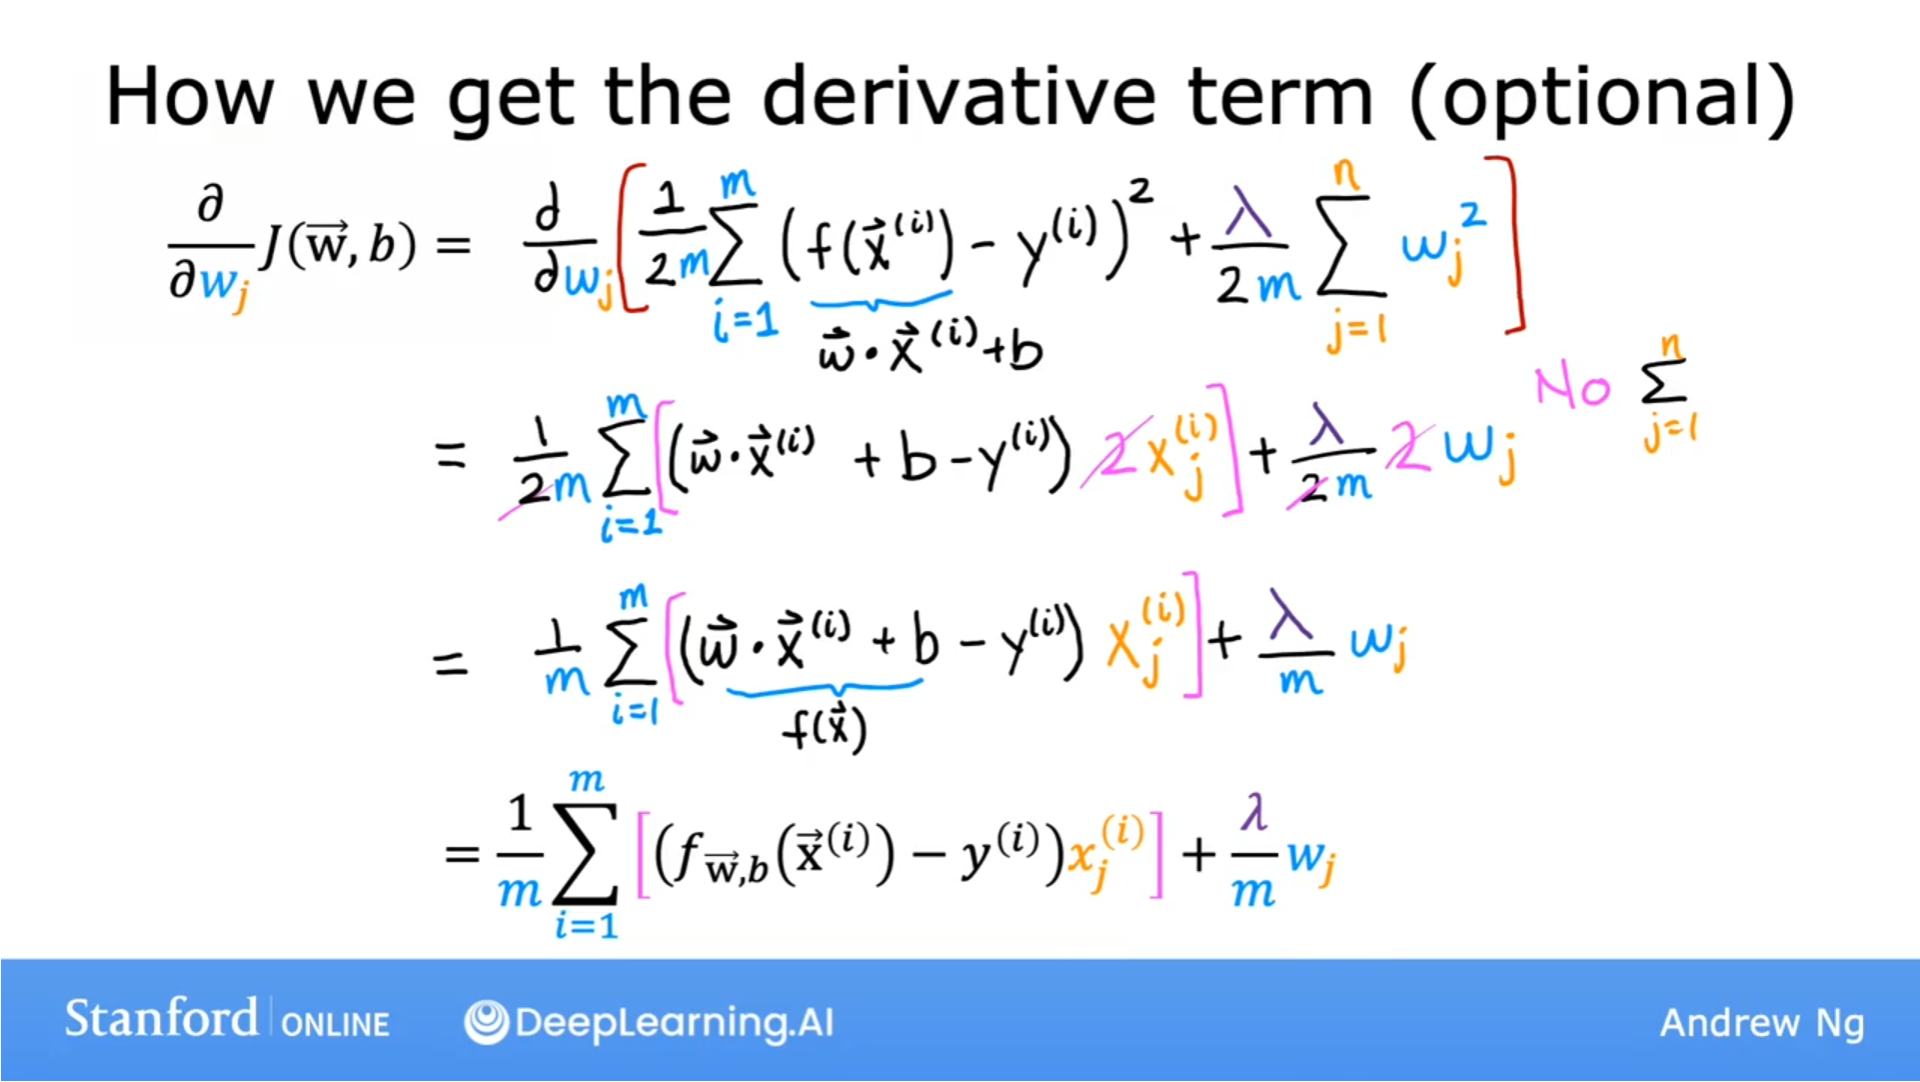 How we get the derivative term (optional)
∂/∂wⱼ J(w⃗, b) = ∂/∂wⱼ [ 1/2m Σ_{i=1}^{m} (f(x⃗^(i)) − y^(i))² + λ/2m Σ_{j=1}^{n} wⱼ² ]
w⃗ · x⃗^(i) + b
= 1/2m Σ_{i=1}^{m} [ (w⃗ · x⃗^(i) + b − y^(i)) 2 xⱼ^(i) ] + λ/2m 2 wⱼ No Σ_{j=1}^{n}
= 1/m Σ_{i=1}^{m} [ (w⃗ · x⃗^(i) + b − y^(i)) xⱼ^(i) ] + λ/m wⱼ
f(x⃗)
= 1/m Σ_{i=1}^{m} [ (f_{w⃗,b}(x⃗^(i)) − y^(i)) xⱼ^(i) ] + λ/m wⱼ
Stanford | ONLINE DeepLearning.AI Andrew Ng